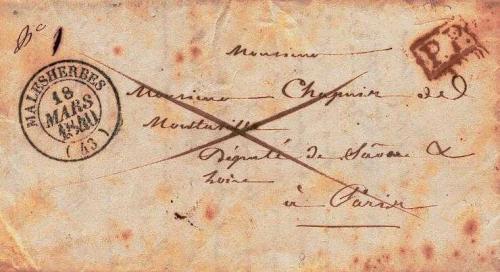 MALESHERBES
18
MARS
(43)
P.P.
Monsieur
Monsieur Chapuis de
Montaville
Député de Saône &
Loire
à Paris